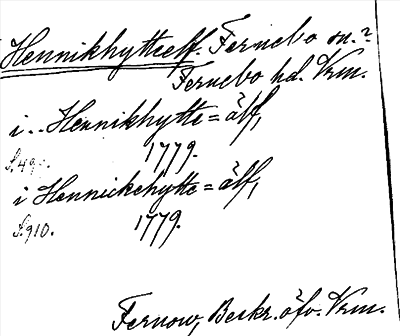 Hennikhytteelf. Fernebo sn.?
Fernebo hd. Vrm.
i .. Hennikhytte=älf,
1779.
S. 49
i Hennickehytte=älf,
1779.
S. 910.
Fernow, Beskr. öfv. Vrm.